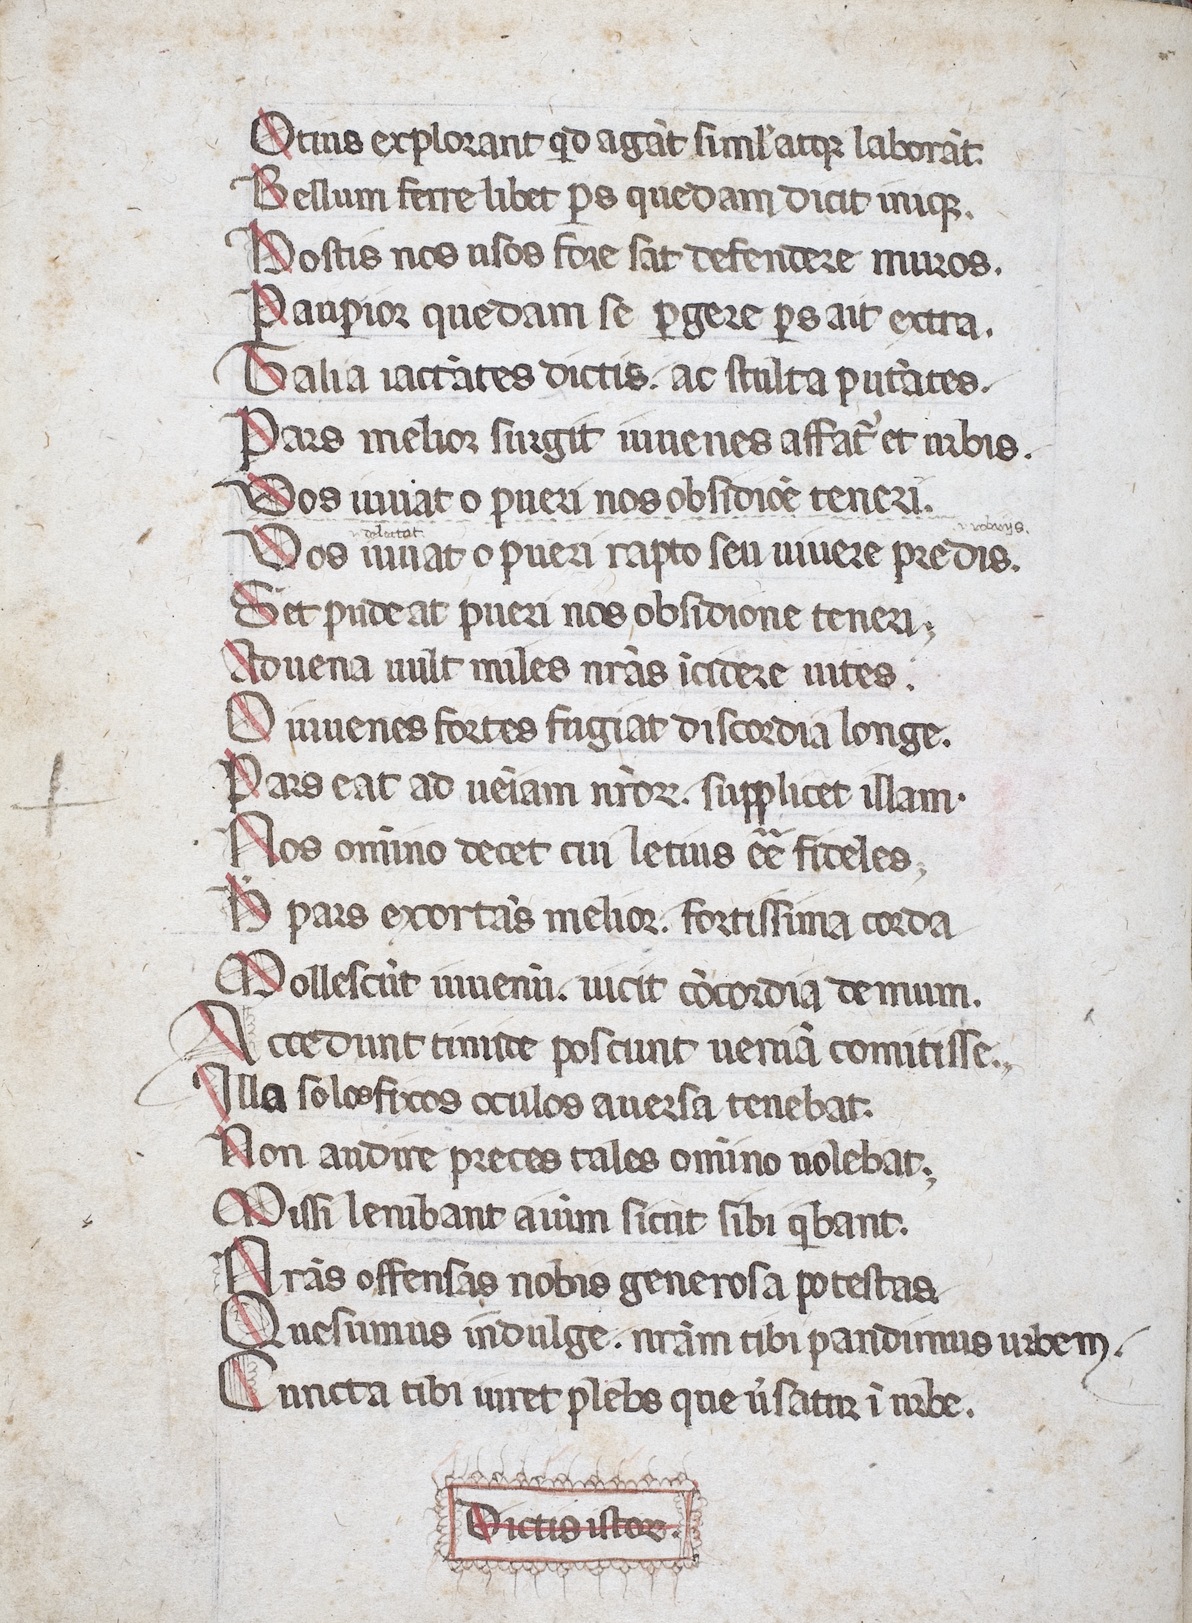 Ocius explorant qđ agāt siml' atqꝫ laborāt.
Bellum ferre libet ꝑs quedam dicit iniqꝫ.
Hostis nos usos fore sat defendere muros.
Pauꝑior quedam se ꝑgere ꝑs ait extra.
Talia iactātes dictis. ac stulta putātes.
Pars melior surgit iuuenes affat᷑ et urbis.
Vos iuuat o pueri nos obsidiōe teneri.
delectat robiis.
Vos iuuat o pueri rapto seu uiuere predis.
Set pudeat pueri nos obsidione teneri;
Aduena uult miles nrās īcidere uites.
O iuuenes fortes fugiat discordia longe.
Pars eat ad ueīam nrōꝝ. supplicet illam.
Nos omīno decet cui letius eē fideles;
H pars exortās melior. fortissima corda
Mollescūt iuuenū. uicit cōcordia demum.
Accedunt timide poscunt ueniā comitisse.
Illa solo fixos oculos auersa tenebat.
Non audire preces tales omīno uolebat;
Missi lenibant aīūm sicut sibi q̄bant.
Nrās offensas nobis generosa potestas
Quesumus indulge. nrām tibi pandimus urbem.
Cuncta tibi iuret plebs que ūsatur ī urbe.
Dictis istoꝝ.